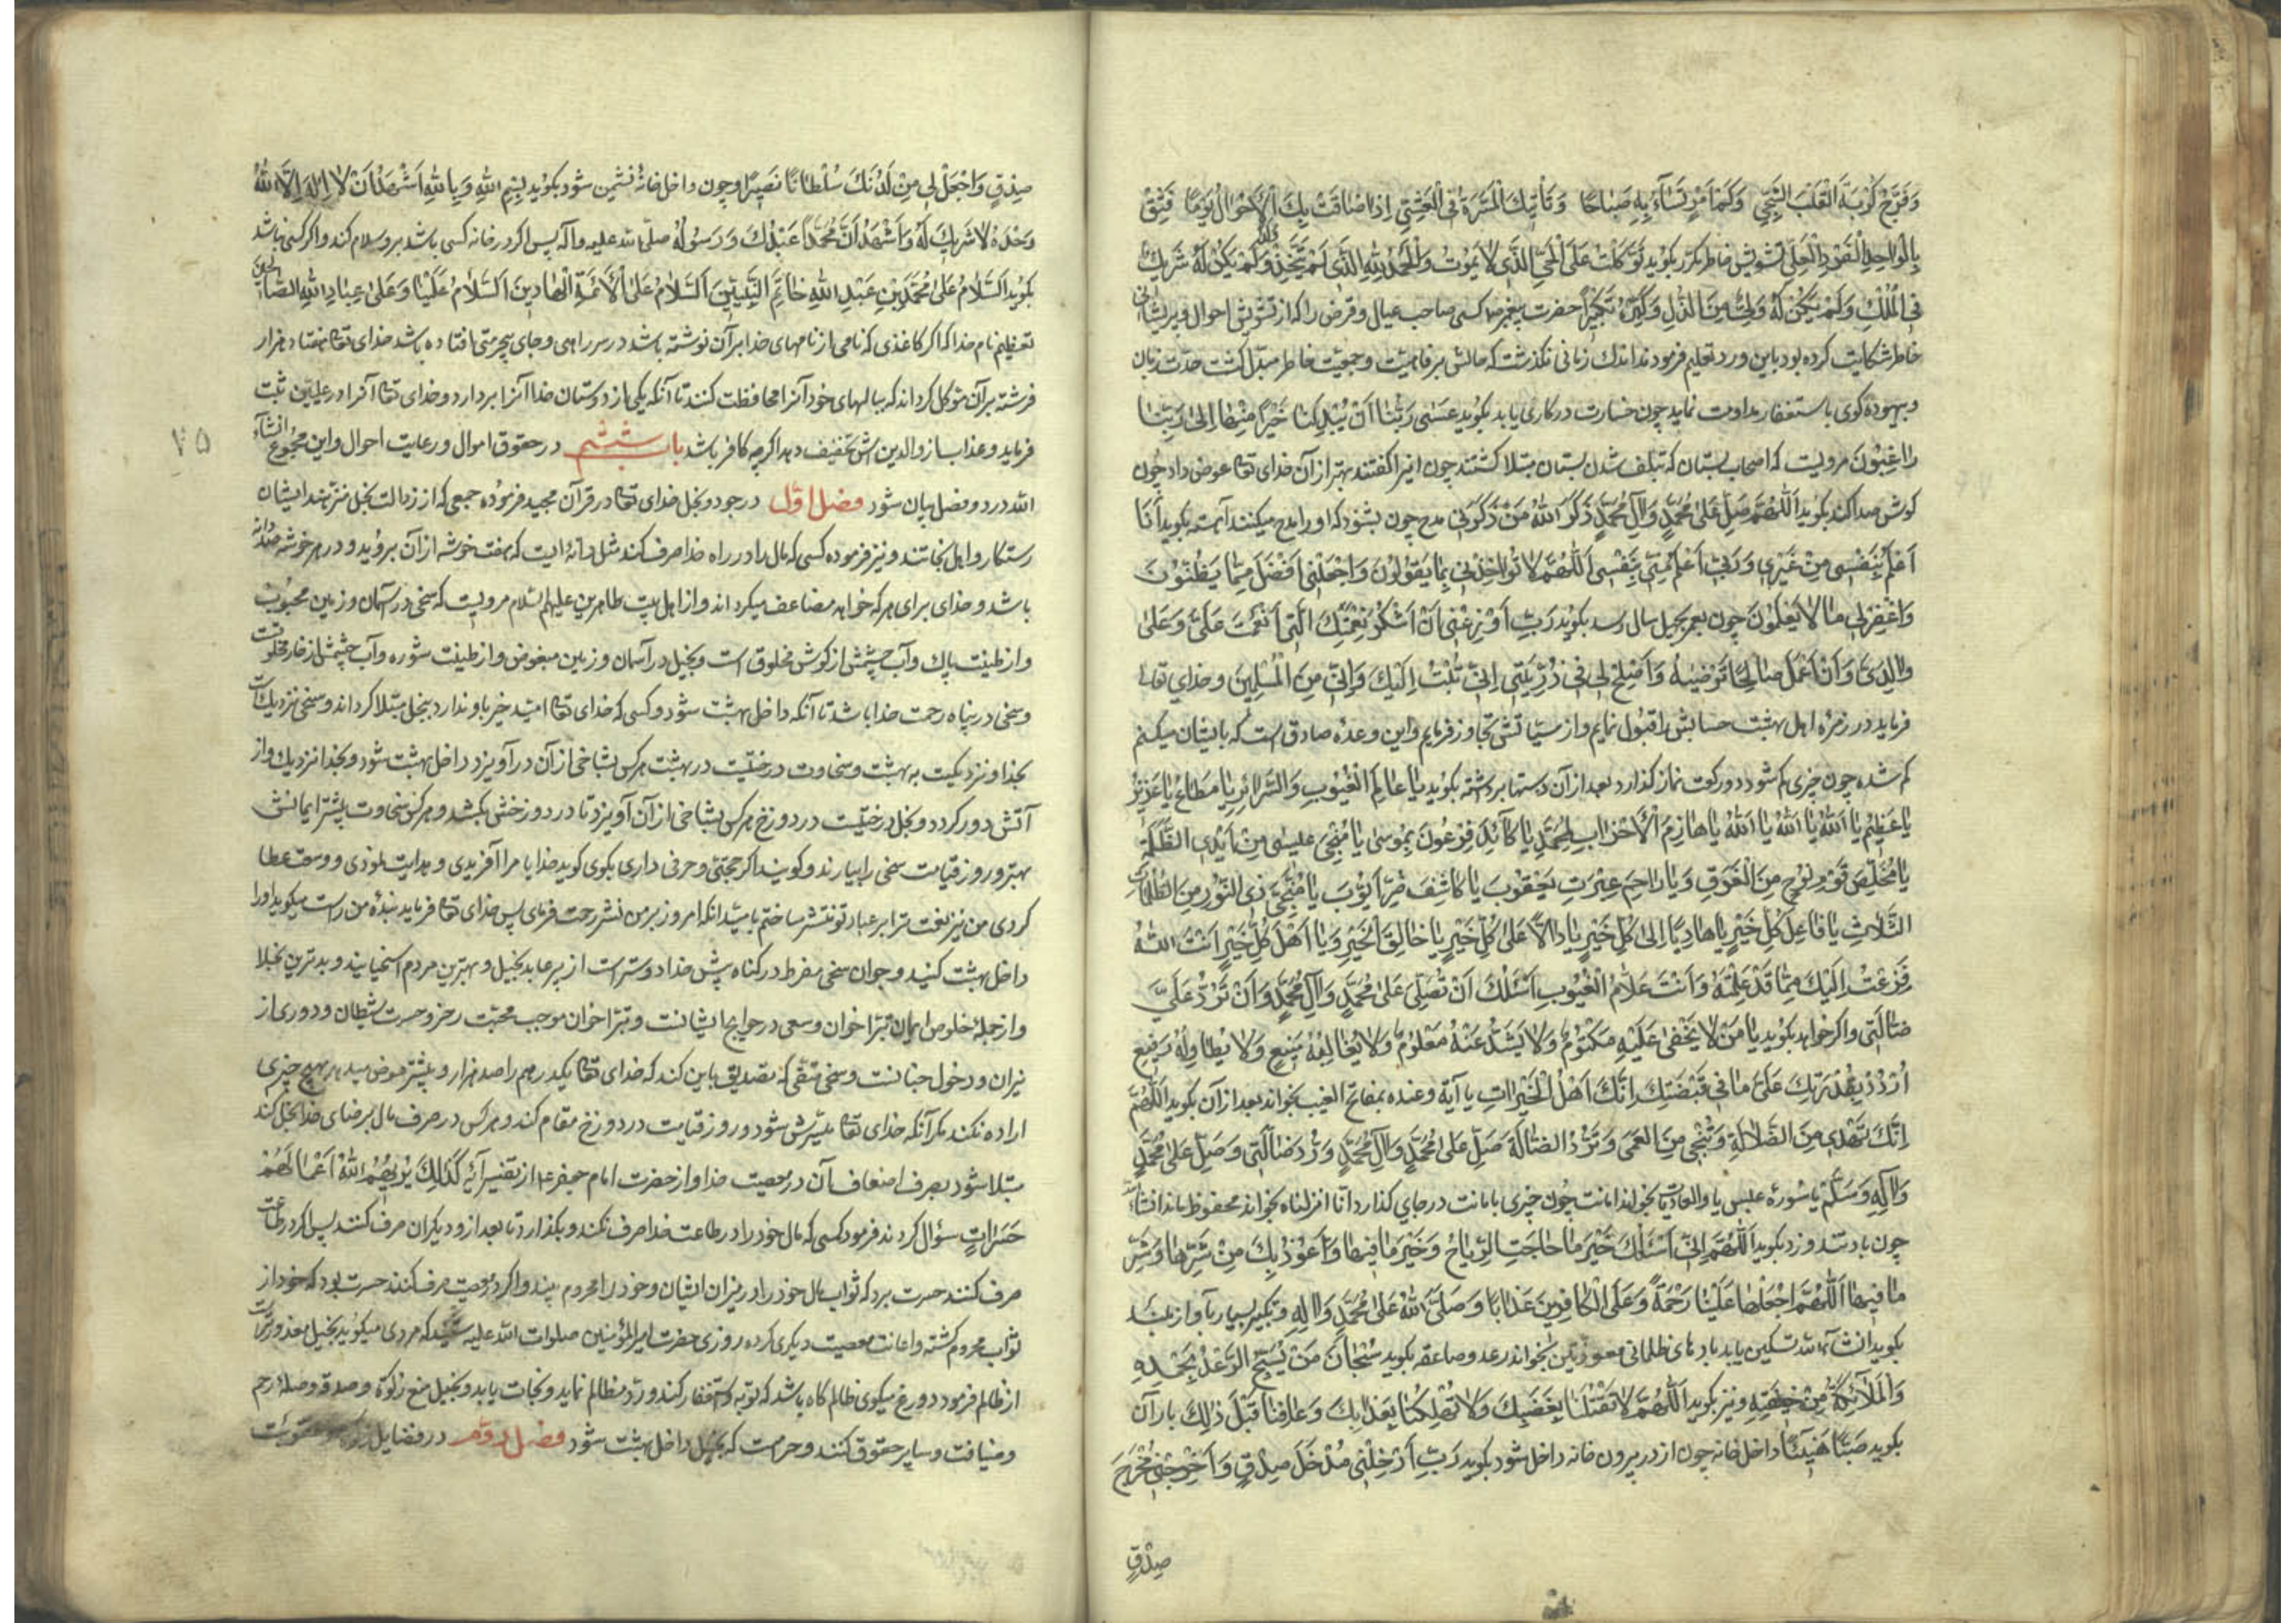 وَفَرَّجَ كُرْبَةَ الْقَلْبِ الشَّجِيِّ وَكَمْ اَمْرٍ تُسَآءُ بِهِ صَبَاحًا وَتَأْتِيكَ الْمَسَرَّةُ فِى الْعَشِيِّ اِذَا ضَاقَتْ بِكَ الْاَحْوَالُ يَوْمًا فَثِقْ
بِالْوَاحِدِ الْفَرْدِ الْعَلِيِّ تشويش خاطر مكرّر بكويد تَوَكَّلْتُ عَلَى الْحَيِّ الَّذِى لَا يَمُوتُ وَالْحَمْدُ لِلّٰهِ الَّذِى لَمْ يَتَّخِذْ وَلَدًا وَلَمْ يَكُنْ لَهُ شَرِيكٌ
فِى الْمُلْكِ وَلَمْ يَكُنْ لَهُ وَلِيٌّ مِنَ الذُّلِّ وَكَبِّرْهُ تَكْبِيرًا حضرت پيغمبر ص كسى صاحب عيال و قرض را كه از تشويش احوال و پريشانى
خاطر شكايت كرده بود باين ورد تعليم فرمودند اندك زمانى نكذشت كه حالش برفاهيت و جمعيت خاطر مبدّل كشت حدّت زبان
و بيهوده كوى باستغفار مداومت نمايد چون خسارت در كارى يابد بكويد عَسٰى رَبُّنَا اَنْ يُبْدِلَنَا خَيْرًا مِنْهَا اِلٰى رَبِّنَا
رَاغِبُونَ مرويست كه اصحاب بستان كه بتلف شدن بستان مبتلا كشتند چون اينرا كفتند بهتر از آن خداى تعا عوض داد چون
كوش صدا كند بكويد اَللّٰهُمَّ صَلِّ عَلٰى مُحَمَّدٍ وَاٰلِ مُحَمَّدٍ ذَكَرَ اللّٰهُ مَنْ ذَكَرَنِى مدح چون بشنود كه او را مدح ميكنند آهسته بكويد اَنَا
اَعْلَمُ بِنَفْسِى مِنْ غَيْرِى وَرَبِّى اَعْلَمُ مِنِّى بِنَفْسِى اَللّٰهُمَّ لَا تُؤَاخِذْنِى بِمَا يَقُولُونَ وَاجْعَلْنِى اَفْضَلَ مِمَّا يَظُنُّونَ
وَاغْفِرْ لِى مَا لَا يَعْلَمُونَ چون بعمر چهل سال رسد بكويد رَبِّ اَوْزِعْنِى اَنْ اَشْكُرَ نِعْمَتَكَ الَّتِى اَنْعَمْتَ عَلَيَّ وَعَلٰى
وَالِدَيَّ وَاَنْ اَعْمَلَ صَالِحًا تَرْضٰيهُ وَاَصْلِحْ لِى فِى ذُرِّيَّتِى اِنِّى تُبْتُ اِلَيْكَ وَاِنِّى مِنَ الْمُسْلِمِينَ و خداى تعا
فرمايد در زمره اهل بهشت حسابش را قبول نمايم و از سيّاتش تجاوز فرمايم و اين وعده صادق است كه بايشان ميكنم
كم شده چون چيزى كم شود دو ركعت نماز كذارد بعد از آن دستها برداشته بكويد يَا عَالِمَ الْغُيُوبِ وَالسَّرَائِرِ يَا مُطَاعُ يَا عَزِيزُ
يَا عَظِيمُ يَا اَللّٰهُ يَا اَللّٰهُ يَا اَللّٰهُ يَا هَازِمَ الْاَحْزَابِ لِمُحَمَّدٍ يَا كَائِدَ فِرْعَوْنَ بِمُوسٰى يَا مُنْجِيَ عِيسٰى مِنْ اَيْدِى الظَّلَمَةِ
يَا مُخَلِّصَ قَوْمِ نُوحٍ مِنَ الْغَرَقِ وَيَا رَاحِمَ عَبْرَتِ يَعْقُوبَ يَا كَاشِفَ ضُرِّ اَيُّوبَ يَا مُنْجِيَ ذِى النُّونِ مِنَ الظُّلُمَاتِ
الثَّلَاثِ يَا فَاعِلَ كُلِّ خَيْرٍ يَا هَادِيًا اِلٰى كُلِّ خَيْرٍ يَا دَالًّا عَلٰى كُلِّ خَيْرٍ يَا خَالِقَ الْخَيْرِ وَيَا اَهْلَ كُلِّ خَيْرٍ اَنْتَ اللّٰهُ
فَزِعْتُ اِلَيْكَ مِمَّا قَدْ عَلِمْتَهُ وَاَنْتَ عَلَّامُ الْغُيُوبِ اَسْئَلُكَ اَنْ تُصَلِّيَ عَلٰى مُحَمَّدٍ وَاٰلِ مُحَمَّدٍ وَاَنْ تَرُدَّ عَلَيَّ
ضَالَّتِى و اكر خواهد بكويد يَا مَنْ لَا يَخْفٰى عَلَيْهِ مَكْتُومٌ وَلَا يَشُذُّ عَنْهُ مَعْلُومٌ وَلَا يُغَالِبُهُ مَنِيعٌ وَلَا يُطَاوِلُهُ رَفِيعٌ
اُرْدُدْ بِقُدْرَتِكَ عَلَيَّ مَا فِى قَبْضَتِكَ اِنَّكَ اَهْلُ الْخَيْرَاتِ يا آية و عنده مفاتح الغيب بخواند بعد از آن بكويد اَللّٰهُمَّ
اِنَّكَ تَهْدِى مِنَ الضَّلَالَةِ وَتُنْجِى مِنَ الْعَمٰى وَتَرُدُّ الضَّالَّةَ صَلِّ عَلٰى مُحَمَّدٍ وَاٰلِ مُحَمَّدٍ وَرُدَّ ضَالَّتِى وَصَلِّ عَلٰى مُحَمَّدٍ
وَاٰلِهِ وَسَلِّمْ يا سورۀ عبس يا والعاديات بخواند امانت چون چيزى بامانت در جاى كذارد انّا انزلناه بخواند محفوظ ماند انشاءالله
چون باد تند وزد بكويد اَللّٰهُمَّ اِنِّى اَسْئَلُكَ خَيْرَ مَا هَاجَتِ الرِّيَاحُ وَخَيْرَ مَا فِيهَا وَاَعُوذُ بِكَ مِنْ شَرِّهَا وَشَرِّ
مَا فِيهَا اَللّٰهُمَّ اجْعَلْهَا عَلَيْنَا رَحْمَةً وَعَلَى الْكَافِرِينَ عَذَابًا وَصَلَّى اللّٰهُ عَلٰى مُحَمَّدٍ وَاٰلِهِ و تكبير بسيار بآواز بلند
بكويد انشآءالله تسكين يابد بادهاى ظلمانى معوذتين بخواند رعد و صاعقه بكويد سُبْحَانَ مَنْ يُسَبِّحُ الرَّعْدُ بِحَمْدِهِ
وَالْمَلَائِكَةُ مِنْ خِيفَتِهِ و نيز بكويد اَللّٰهُمَّ لَا تَقْتُلْنَا بِغَضَبِكَ وَلَا تُهْلِكْنَا بِعَذَابِكَ وَعَافِنَا قَبْلَ ذٰلِكَ باران
بكويد صَبًّا هَنِيئًا داخل خانه چون از در بيرون خانه داخل شود بكويد رَبِّ اَدْخِلْنِى مُدْخَلَ صِدْقٍ وَاَخْرِجْنِى مُخْرَجَ
صِدْقٍ
صِدْقٍ وَاجْعَلْ لِى مِنْ لَدُنْكَ سُلْطَانًا نَصِيرًا و چون داخل خانۀ نشيمن شود بكويد بِسْمِ اللّٰهِ وَبِاللّٰهِ اَشْهَدُ اَنْ لَا اِلٰهَ اِلَّا اللّٰهُ
وَحْدَهُ لَا شَرِيكَ لَهُ وَاَشْهَدُ اَنَّ مُحَمَّدًا عَبْدُكَ وَرَسُولُهُ صلّى الله عليه و آله پس اكر در خانه كسى باشد بر او سلام كند و اكر كسى نباشد
بكويد اَلسَّلَامُ عَلٰى مُحَمَّدِ بْنِ عَبْدِ اللّٰهِ خَاتَمِ النَّبِيِّينَ اَلسَّلَامُ عَلَى الْاَئِمَّةِ الْهَادِينَ اَلسَّلَامُ عَلَيْنَا وَعَلٰى عِبَادِ اللّٰهِ الصَّالِحِينَ
تعظيم نام خدا كه اكر كاغذى كه نامى از نامهاى خدا بر آن نوشته باشد در سر راهى و جاى بيحرمتى افتاده باشد خداى تعا هفتاد هزار
فرشته بر آن موكل كرداند كه ببالهاى خود آنرا محافظت كنند تا آنكه يكى از دوستان خدا آنرا بردارد و خداى تعا آنرا در علّيين ثبت
فرمايد و عذاب از والدين اش تخفيف دهد اكرچه كافر باشد باب ششم در حقوق اموال و رعايت احوال و اين مجموع انشآء
۷۵
الله در دو فصل بيان شود فصل اوّل در جود و بخل خداى تعا در قرآن مجيد فرموده جمعى كه از رذالت بخل منزّهند ايشان
رستكار و اهل نجاتند و نيز فرموده كسى كه مال را در راه خدا صرف كند مثل دانۀ ايست كه هفت خوشه از آن برويد و در هر خوشه صد دانه
باشد و خداى براى هر كه خواهد مضاعف ميكرداند و از اهل بيت طاهرين عليهم السلام مرويست كه سخى در آسمان و زمين محبوبست
و از طينت پاك و آب چشمش از كوثر مخلوق است و بخيل در آسمان و زمين مبغوض و از طينت شوره و آب چشمش از خار مخلوقست
و سخى در پناه رحمت خدا باشد تا آنكه داخل بهشت شود و كسى كه خداى تعا اميد خير باو ندارد ببخل مبتلا كرداند و سخى نزديكست
بخدا و نزديكست به بهشت و سخاوت درختيست در بهشت هركس بشاخى از آن درآويزد داخل بهشت شود و بخدا نزديك و از
آتش دور كردد و بخل درختيست در دوزخ هركس بشاخى از آن آويزد تا در دوزخش بكشد و هركس سخاوت پيشتر ايمانش
بهتر و روز قيامت سخى را بيارند و كويند اكر حجّتى و حرفى دارى بكوى كويد خدايا مرا آفريدى و هدايت نمودى و وسعت عطا
كردى من نيز نعمت ترا بر عباد تو منتشر ساختم باميد آنكه امروز بر من نشر رحمت فرماى پس خداى تعا فرمايد بندۀ من راست ميكويد او را
داخل بهشت كنيد و جوان سخى مفرط در كناه پيش خدا دوستر است از پير عابد بخيل و بهترين مردم اسخيايند و بدترين بخلا
و از جملۀ خلوص ايمان برّ اخوان و سعى در حوايج ايشانست و برّ اخوان موجب محبّت رحمن و حسرت شيطان و دورى از
نيران و دخول جنانست و سخى متّقى كه تصديق باين كند كه خداى تعا يكدرهم را صد هزار و بيشتر عوض ميدهد بهيچ چيزى
اراده نكند مكر آنكه خداى تعا ميسّرش شود و روز قيامت در دوزخ مقام كند و هركس در صرف مال برضاى خدا بخل كند
مبتلا شود بصرف اضعاف آن در معصيت خدا و از حضرت امام جعفر ع از تفسير آيه كَذٰلِكَ يُرِيهِمُ اللّٰهُ اَعْمَالَهُمْ
حَسَرَاتٍ سؤال كردند فرمود كسى كه مال خود را در طاعت خدا صرف نكند و بكذارد تا بعد از و ديكران صرف كنند پس اكر در طاعت
صرف كنند حسرت برد كه ثواب مال خود را در ميزان ايشان و خود را محروم بيند و اكر در معصيت صرف كنند حسرت بود كه خود از
ثواب محروم كشته و اعانت معصيت ديكرى كرده روزى حضرت اميرالمؤمنين صلوات الله عليه شنيد كه مردى ميكويد بخيل معذورتر است
از ظالم فرمود دروغ ميكوى ظالم كاه باشد كه توبه و استغفار كند و ردّ مظالم نمايد و نجات يابد و بخيل منع زكوة و صدقه و صلۀ رحم
و ضيافت و ساير حقوق كنند و حرامست كه بخيل داخل بهشت شود فصل دوّم در فضايل